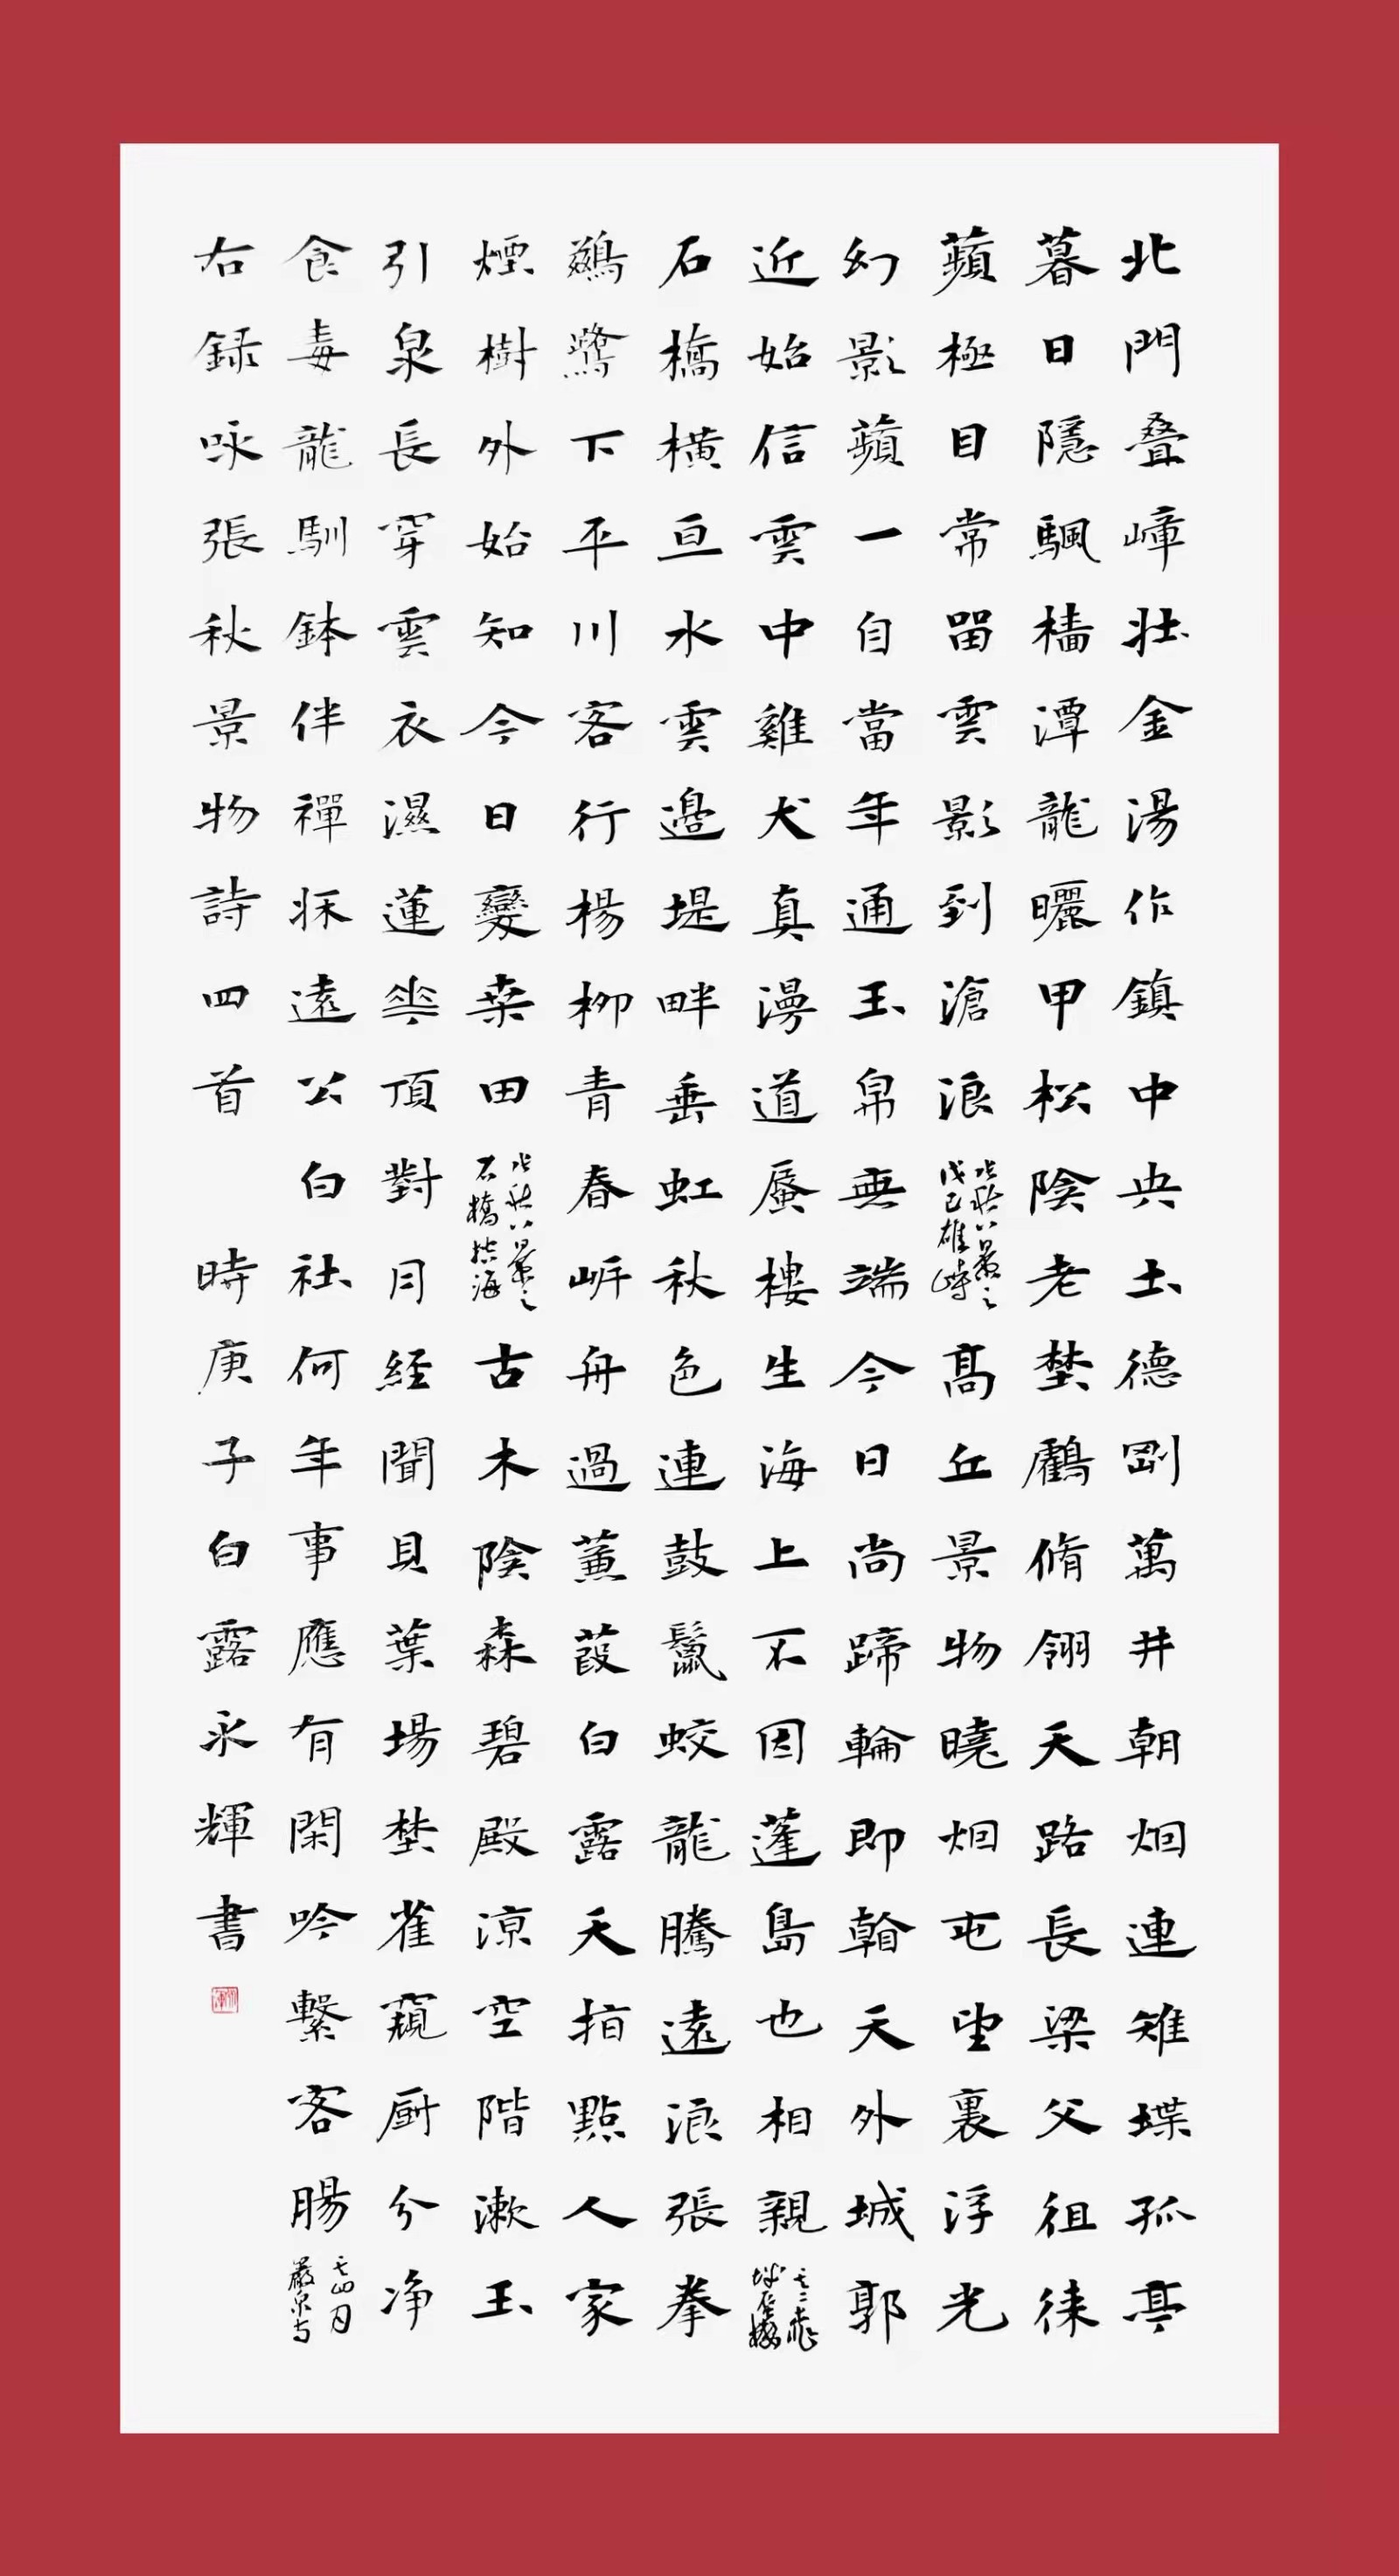 北門叠嶂壯金湯作鎮中央土德剛萬井朝烟連雉堞孤亭
暮日隱颿檣潭龍曬甲松陰老埜鸛脩翎天路長梁父徂徠
蘋極目常留雲影到滄浪
張秋八景之
戊己雄峙
高丘景物曉烟屯望裏浮光
幻影蘋一自當年通玉帛無端今日尚蹄輪即天外城郭
近始信雲中雞犬真漫道蜃樓生海上不因蓬島也相親
石橋橫亘水雲邊堤畔垂虹秋色連鼓鬣蛟龍騰遠浪張拳
鷺下平川客行楊柳青春岸舟過蒹葭白露天指點人家
煙樹外始知今日變桑田
張秋八景之
石橋控海
古木陰森碧殿涼空階漱玉
引泉長穿雲衣濕蓮華頂對月經聞貝葉場埜雀窺厨分净
食毒龍馴鉢伴禪床遠公白社何年事應有閑吟繫客腸
右録咏張秋景物詩四首 時庚子白露永輝書